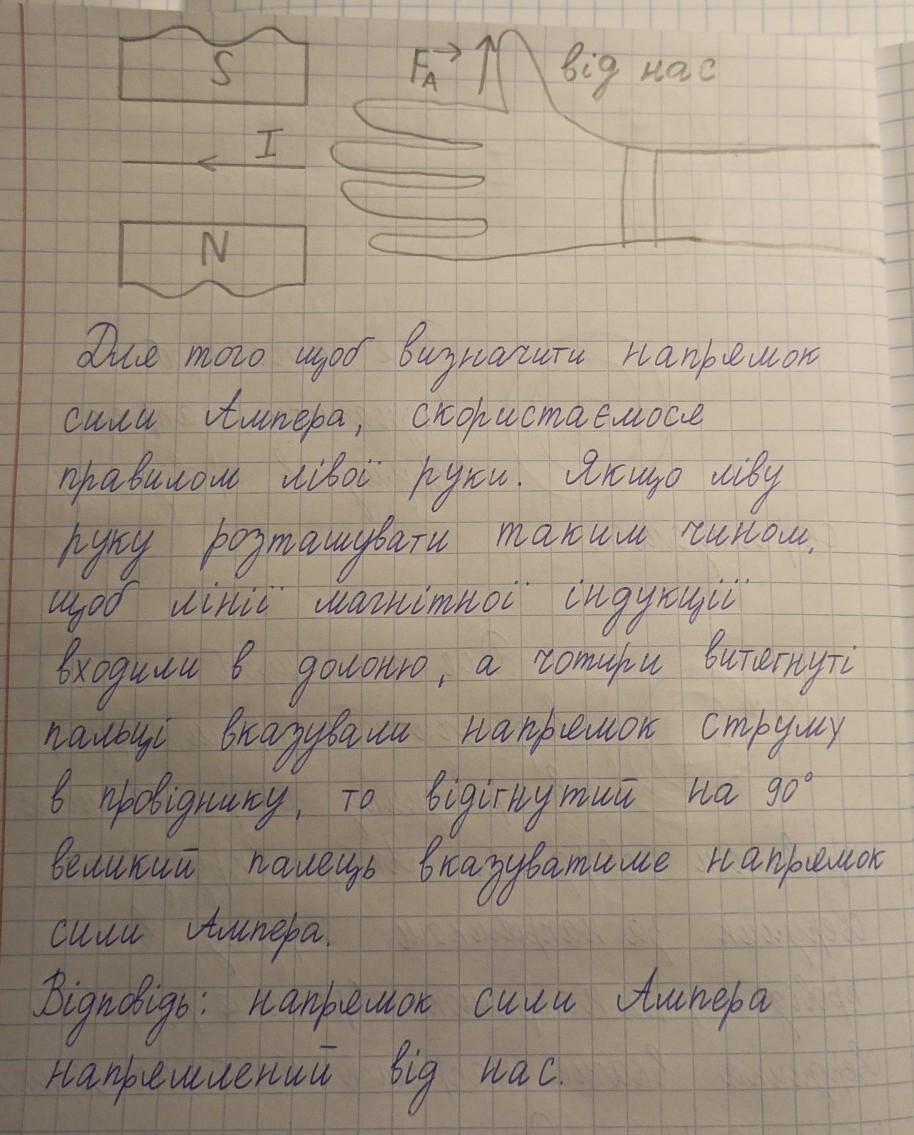 S
F_A→ від нас
I
N
Для того щоб визначити напрямок
сили Ампера, скористаємося
правилом лівої руки. Якщо ліву
руку розташувати таким чином,
щоб лінії магнітної індукціїї
входили в долоню, а чотири витягнуті
пальці вказували напрямок струму
в провіднику, то відігнутий на 90°
великий палець вказуватиме напрямок
сили Ампера.
Відповідь: напрямок сили Ампера
напрямлений від нас.